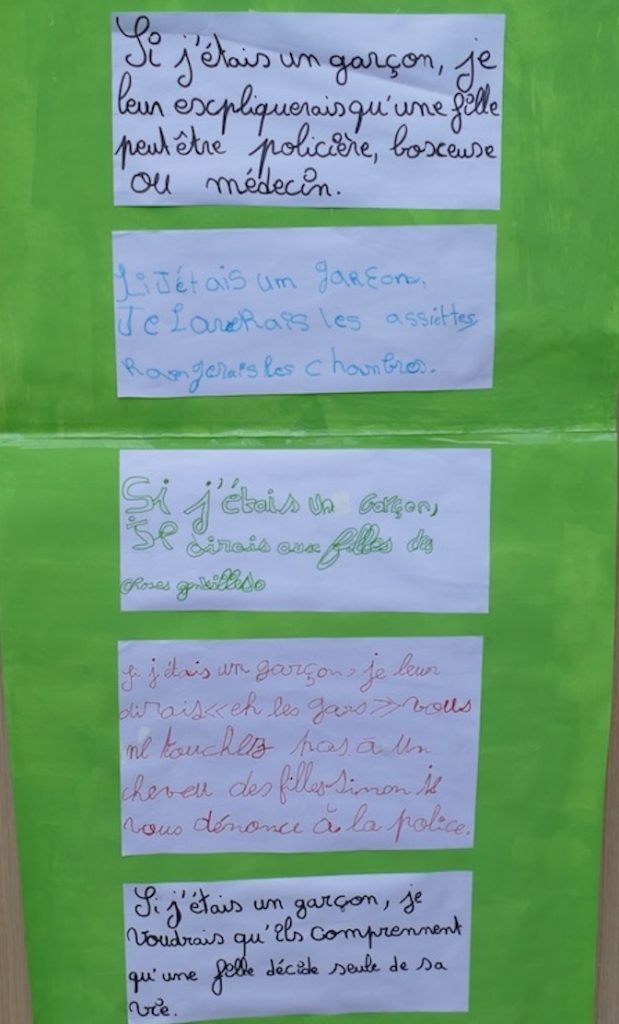 Si j'étais un garçon, je
leur escpliquerais qu'une fille
peut être policière, boxceuse
ou médecin.
Si J'étais um garçon,
Je Laverais les assiettes
Rangerais les chambres.
Si j'étais un garçon,
Je dirais aux filles des
choses gentilles.
Si j'étais un garçon, je leur
dirais « eh les gars » vous
ne touchez pas à un
cheveu des filles simon je
vous dénonce à la police.
Si j'étais un garçon, je
voudrais qu'ils comprennent
qu'une fille décide seule de sa
vie.